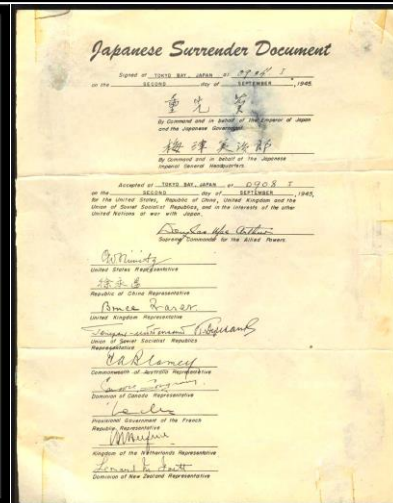 Japanese Surrender Document
Signed at TOKYO BAY, JAPAN at 0904 I
on the SECOND day of SEPTEMBER, 1945.
重光葵
By Command and in behalf of the Emperor of Japan
and the Japanese Government.
梅津美治郎
By Command and in behalf of the Japanese
Imperial General Headquarters.
Accepted at TOKYO BAY, JAPAN at 0908 I
on the SECOND day of SEPTEMBER, 1945,
for the United States, Republic of China, United Kingdom and the
Union of Soviet Socialist Republics, and in the interests of the other
United Nations at war with Japan.
Douglas MacArthur
Supreme Commander for the Allied Powers.
C.W. Nimitz
United States Representative
徐永昌
Republic of China Representative
Bruce Fraser
United Kingdom Representative
Union of Soviet Socialist Republics
Representative
T.A. Blamey
Commonwealth of Australia Representative
Dominion of Canada Representative
Provisional Government of the French
Republic Representative
Kingdom of the Netherlands Representative
Leonard M. Isitt
Dominion of New Zealand Representative